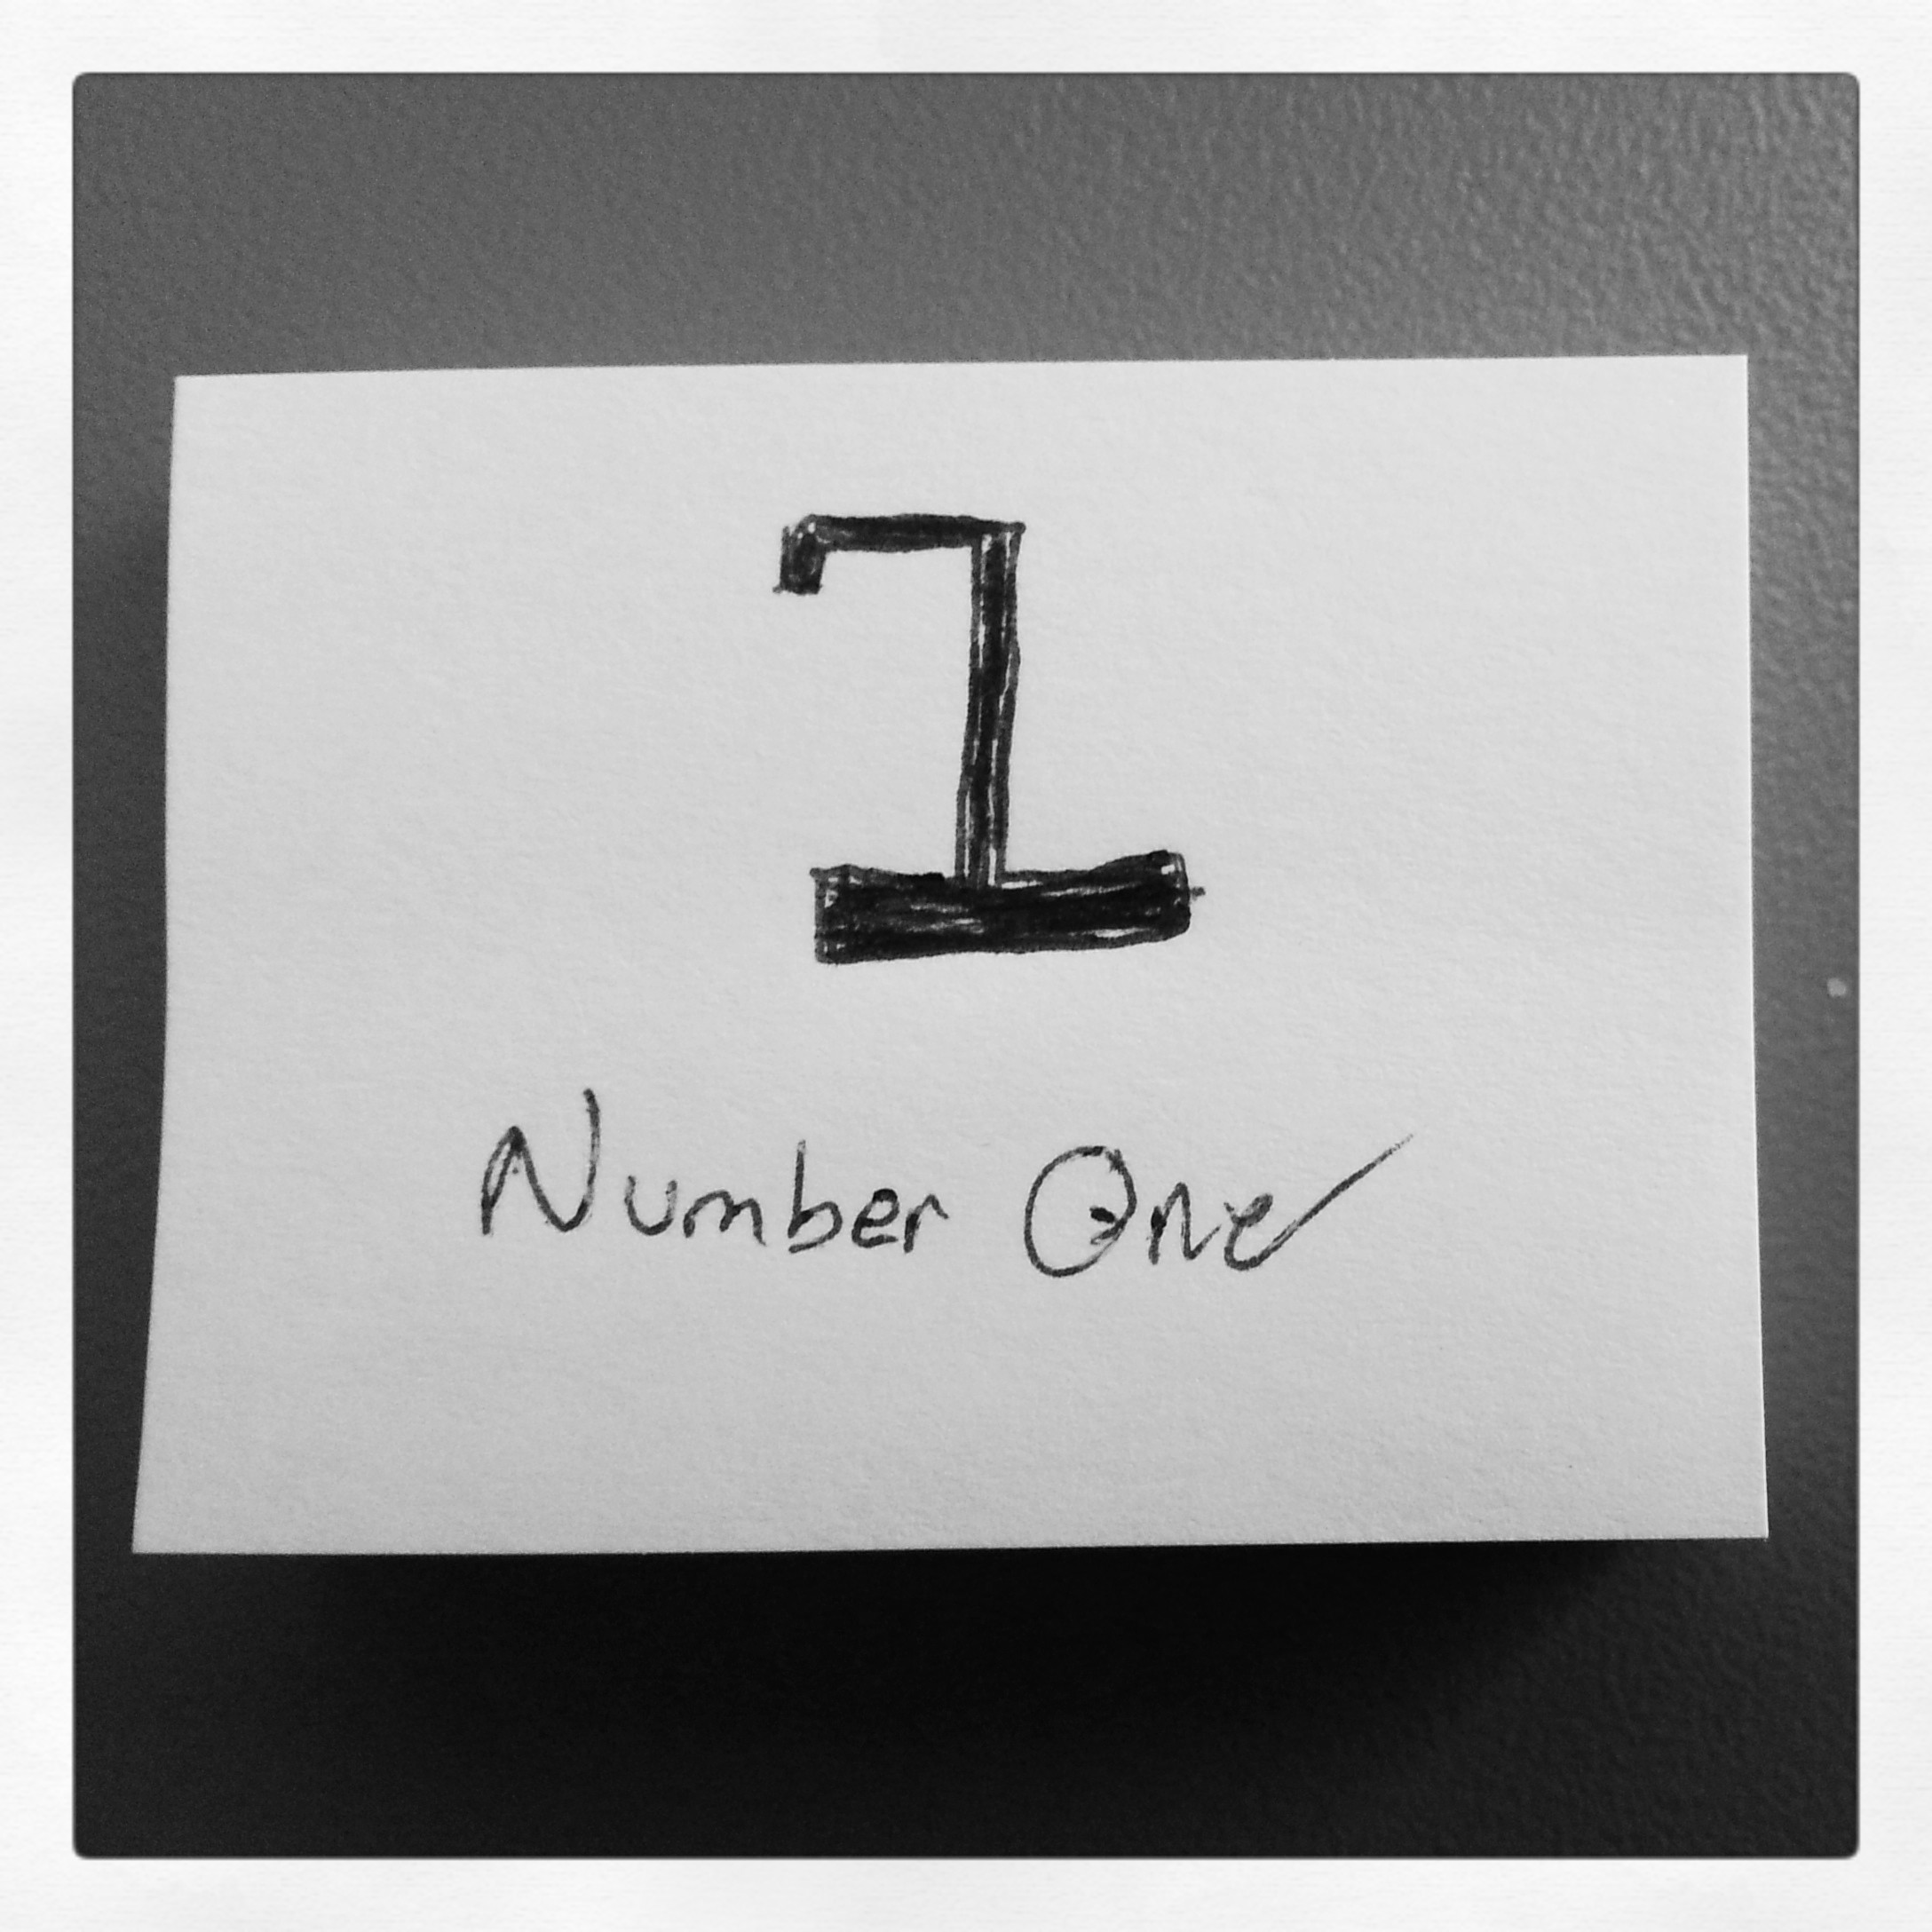 1
Number One